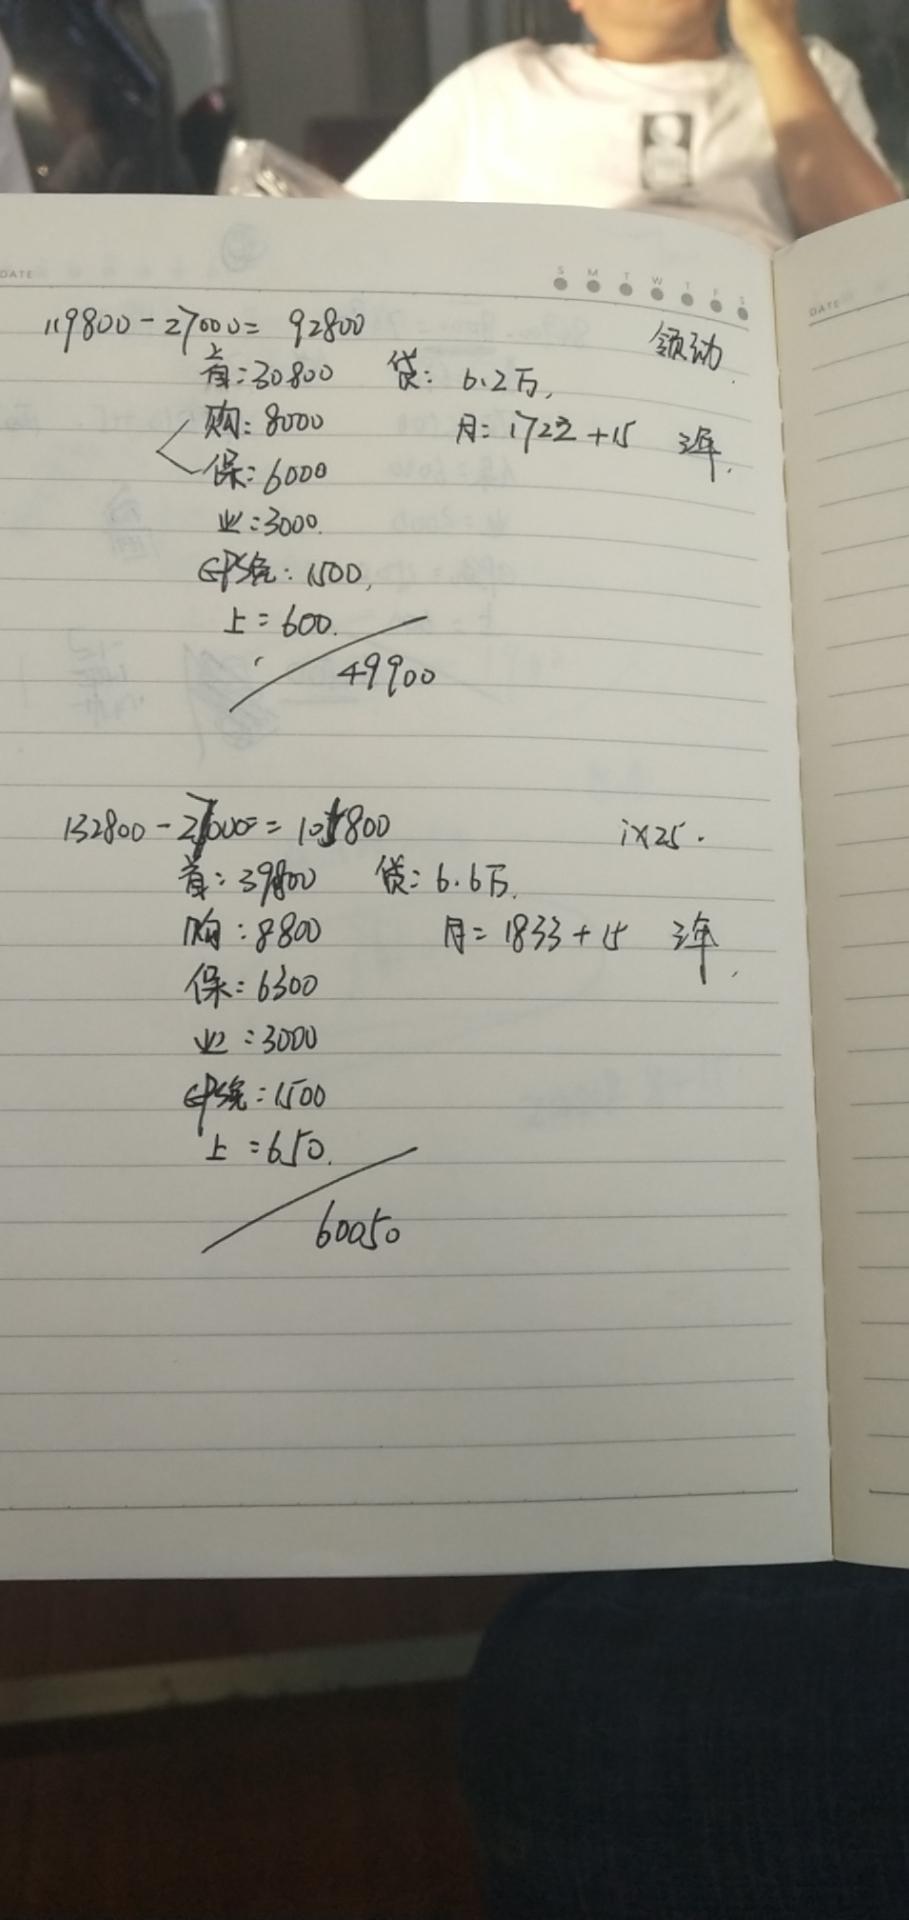 DATE
S M T W T F S
DATE
119800-27000= 92800
领动.
首:30800 贷: 6.2万.
购: 8000 月: 1722+15 3年.
保: 6000
业:3000.
GPS宪: 1500.
上=600.
49900
132800-27000= 105800
ix25.
首: 39800 贷: 6.6万.
购:8800 月= 1833+15 3年.
保: 6300
业:3000
GPS宪:1500
上=650.
60050